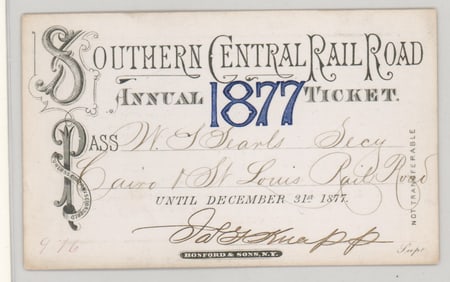 SOUTHERN CENTRAL RAIL ROAD
ANNUAL 1877 TICKET.
PASS W. S Searls Secy
Cairo & St Louis Rail Road
UNTIL DECEMBER 31st 1877.
NOT TRANSFERABLE
Knapp
Supt
HOSFORD & SONS, N.Y.